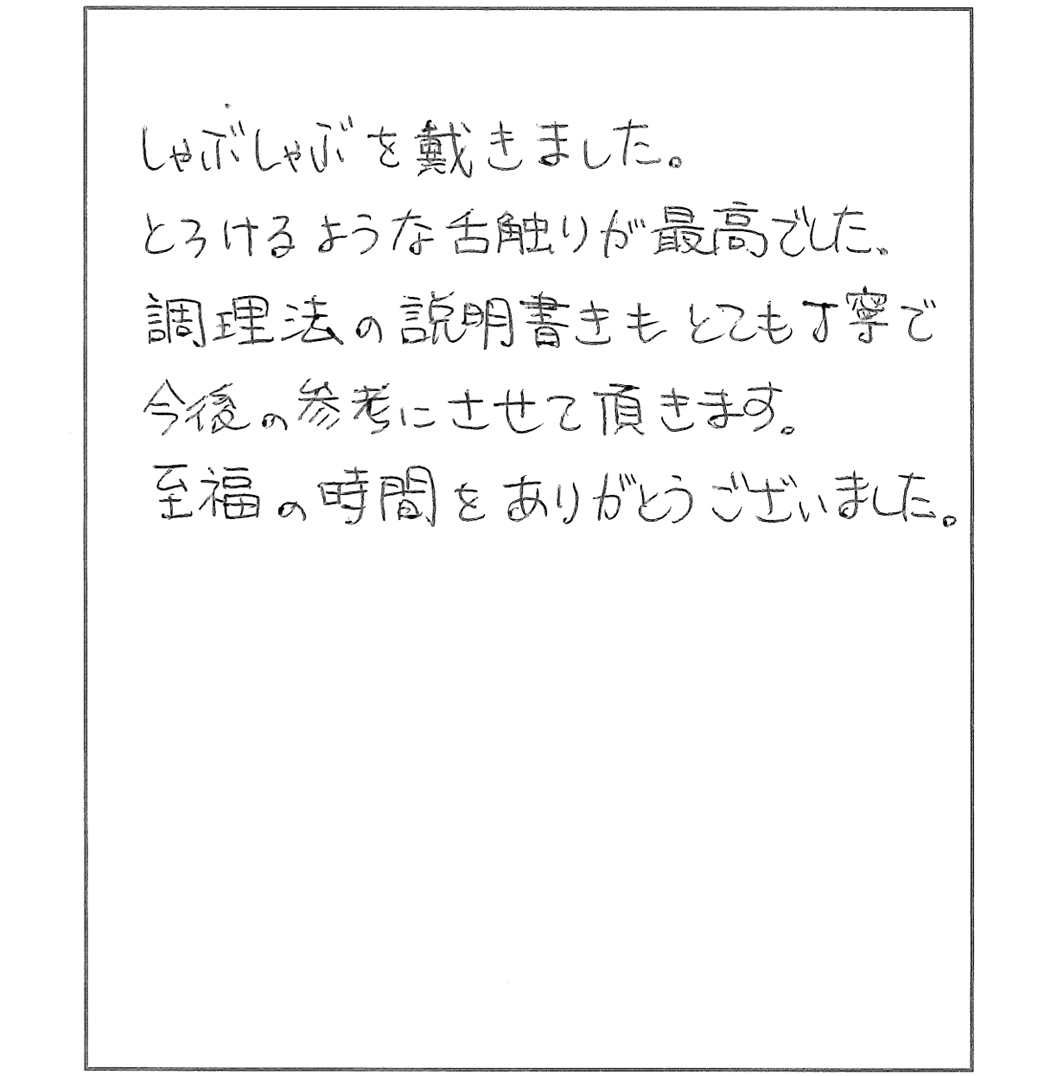 しゃぶしゃぶを戴きました。
とろけるような舌触りが最高でした。
調理法の説明書きもとても丁寧で
今後の参考にさせて頂きます。
至福の時間をありがとうございました。